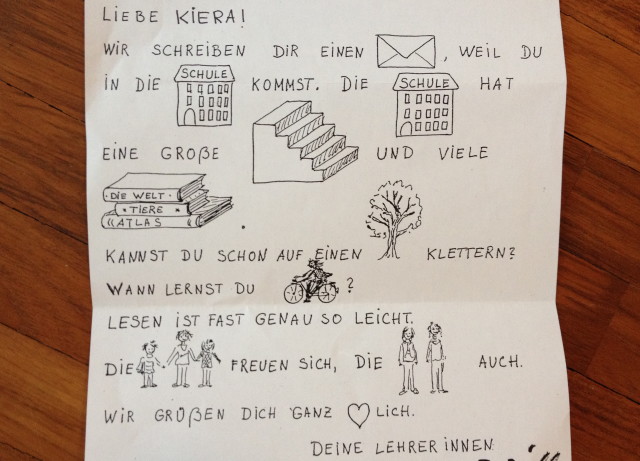 LIEBE KIERA!
WIR SCHREIBEN DIR EINEN , WEIL DU
IN DIE SCHULE KOMMST. DIE SCHULE HAT
EINE GROßE UND VIELE
DIE WELT
TIERE
ATLAS .
KANNST DU SCHON AUF EINEN KLETTERN?
WANN LERNST DU ?
LESEN IST FAST GENAU SO LEICHT.
DIE FREUEN SICH, DIE AUCH.
WIR GRÜßEN DICH GANZ LICH.
DEINE LEHRERINNEN